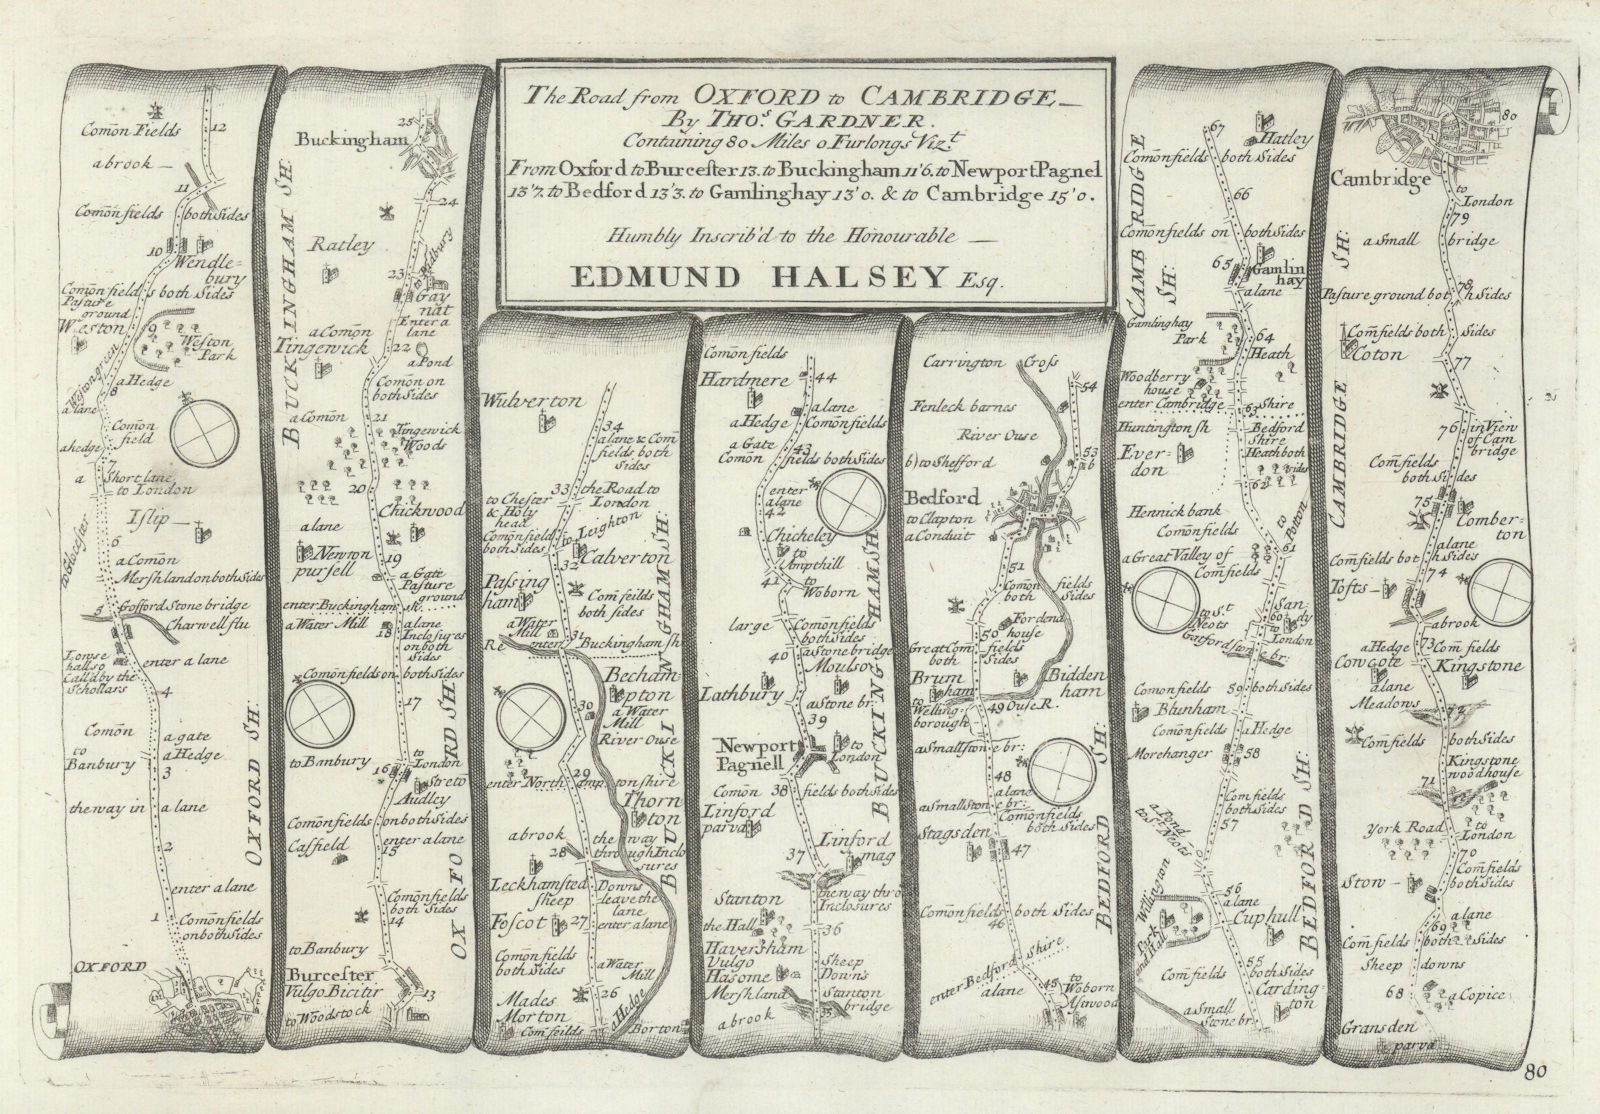 The Road from OXFORD to CAMBRIDGE,
By THOS. GARDNER.
Containing 80 Miles 0 Furlongs Vizt.
From Oxford to Burcester 13. to Buckingham 11'6. to Newport Pagnel
13'7. to Bedford 13'3. to Gamlinghay 13'0. & to Cambridge 15'0.
Humbly Inscrib'd to the Honourable
EDMUND HALSEY Esq.
Comōn Fields
12
a brook
11
Comōn fields both Sides
10
Wendle-
bury
Comōn fields both Sides
Pasture
ground
Weston
9
Weston
Park
Westongreen
a Hedge
8
a lane
Comōn
field
a hedge
7
a Short lane
to London
Islip
to Glocester
6
a Comōn
Mershland on both Sides
5
Gofford Stone bridge
Charwell flu
Lowse
hall so
Call'd by the
Schollars
enter a lane
4
Comōn
a gate
to
Banbury
a Hedge
3
the way in a lane
2
enter a lane
1
Comōn fields
on both Sides
OXFORD
OXFORD SH.
Buckingham
25
24
Ratley
BUCKINGHAM SH.
23
to Padbury
Gay
nut
Enter a
lane
a Comōn
Tingewick
22
a Pond
Comōn on
both Sides
a Comōn
21
Tingewick
Woods
20
Chickwood
a lane
Newton
pursell
19
a Gate
Pasture
ground
enter Buckingham sh.
a Water Mill
18
a lane
Inclosures
on both
Sides
Comōn fields on both Sides
17
to Banbury
to
London
16
Streto
Audley
Comōn fields on both Sides
Casfield
enter a lane
15
Comōn fields
both Sides
14
to Banbury
Burcester
Vulgo Bicitir
13
to Woodstock
OXFORD SH.
Wulverton
34
a lane & Com
fields both
Sides
33
the Road to
London
to Chester
& Holy
head
to Leighton
Comōn fields
both Sides
Calverton
32
Passing
ham
Com feilds
both sides
a Water
Mill
31
enter Buckingham sh
Becham
pton
30
a Water
Mill
River Ouse
29
enter Northamptonshire
Thorn
ton
a brook
the way
through Inclo
sures
28
Leckhamsted
sheep
Downs
leave the
lane
Foscot
27
enter a lane
Comōn fields
both Sides
a Water
Mill
26
Mades
Morton
a Hedge
Com feilds
Borton
BUCKINGHAM SH:
Comōn fields
44
Hardmere
a lane
a Hedge
Comōn fields
a Gate
43
Comōn fields both Sides
enter
a lane
42
Chicheley
to
Ampthill
41
to
Woborn
large Comōn fields
both Sides
a Stone bridge
40
Moulso
Lathbury
a Stone br.
39
Newport
Pagnell
to
London
Comōn 38 fields both Sides
Linford
parva
Linford
mag
37
Stanton
the way thro
Inclosures
the Hall
36
Haversham
Vulgo
Hasome
Sheep
Downs
Mershland
Stanton
bridge
a brook
35
BUCKINGHAMSH.
Carrington Cross
54
Fenleck barnes
River Ouse
to Shefford
53
Bedford
to Clapton
a Conduit
51
Comōn fields
both Sides
50
Fordend
house
Great Com fields
both Sides
Brum
ham
Bidden
ham
to
Welling
borough
49 Ouse R.
a Small stone br:
48
a lane
a Small stone br:
Comōn fields
both Sides
Stagsden
47
Comōn fields both Sides
46
enter Bedford Shire
a lane
45
to
Woborn
Astwood
BEDFORD SH:
67
Hatley
Comōn fields both Sides
66
Comōn fields on both Sides
65
Gamlin
hay
a lane
Gamlinghay
Park
64
Heath
Woodberry
house
enter Cambridge Shire
63
Huntington sh
Bedford
Shire
Heath both
sides
Ever-
don
62
Hennick bank
Comōn fields
to Potton
61
a Great Valley of
Com fields
to St
Neots
San-
dy
60
to
London
Gattford stone br:
Comōn fields 59 both Sides
Blunham
Comōn fields
a Hedge
Morehanger
58
Com fields
both Sides
57
a Pond
to St Neots
56
a lane
Willington
Park
and Hall
Cuphull
55
Com fields
both Sides
Carding-
ton
a Small
Stone br.
CAMBRIDGE SH:
BEDFORD SH:
80
Cambridge
to
London
79
a Small bridge
78
Pasture ground both Sides
Com fields both Sides
Coton
77
76
in View
of Cam
bridge
Com fields
both Sides
75
Comber-
ton
a lane
Com fields both Sides
74
Tofts
a brook
a Hedge
73
Com fields
Cowcote
Kingstone
a lane
Meadows
72
Com fields both Sides
Kingstone
woodhouse
71
York Road
to
London
70
Com fields
both Sides
Stow
a lane
69
Com fields both Sides
Sheep downs
68
a Copice
Gransden
parva
CAMBRIDGE SH:
80